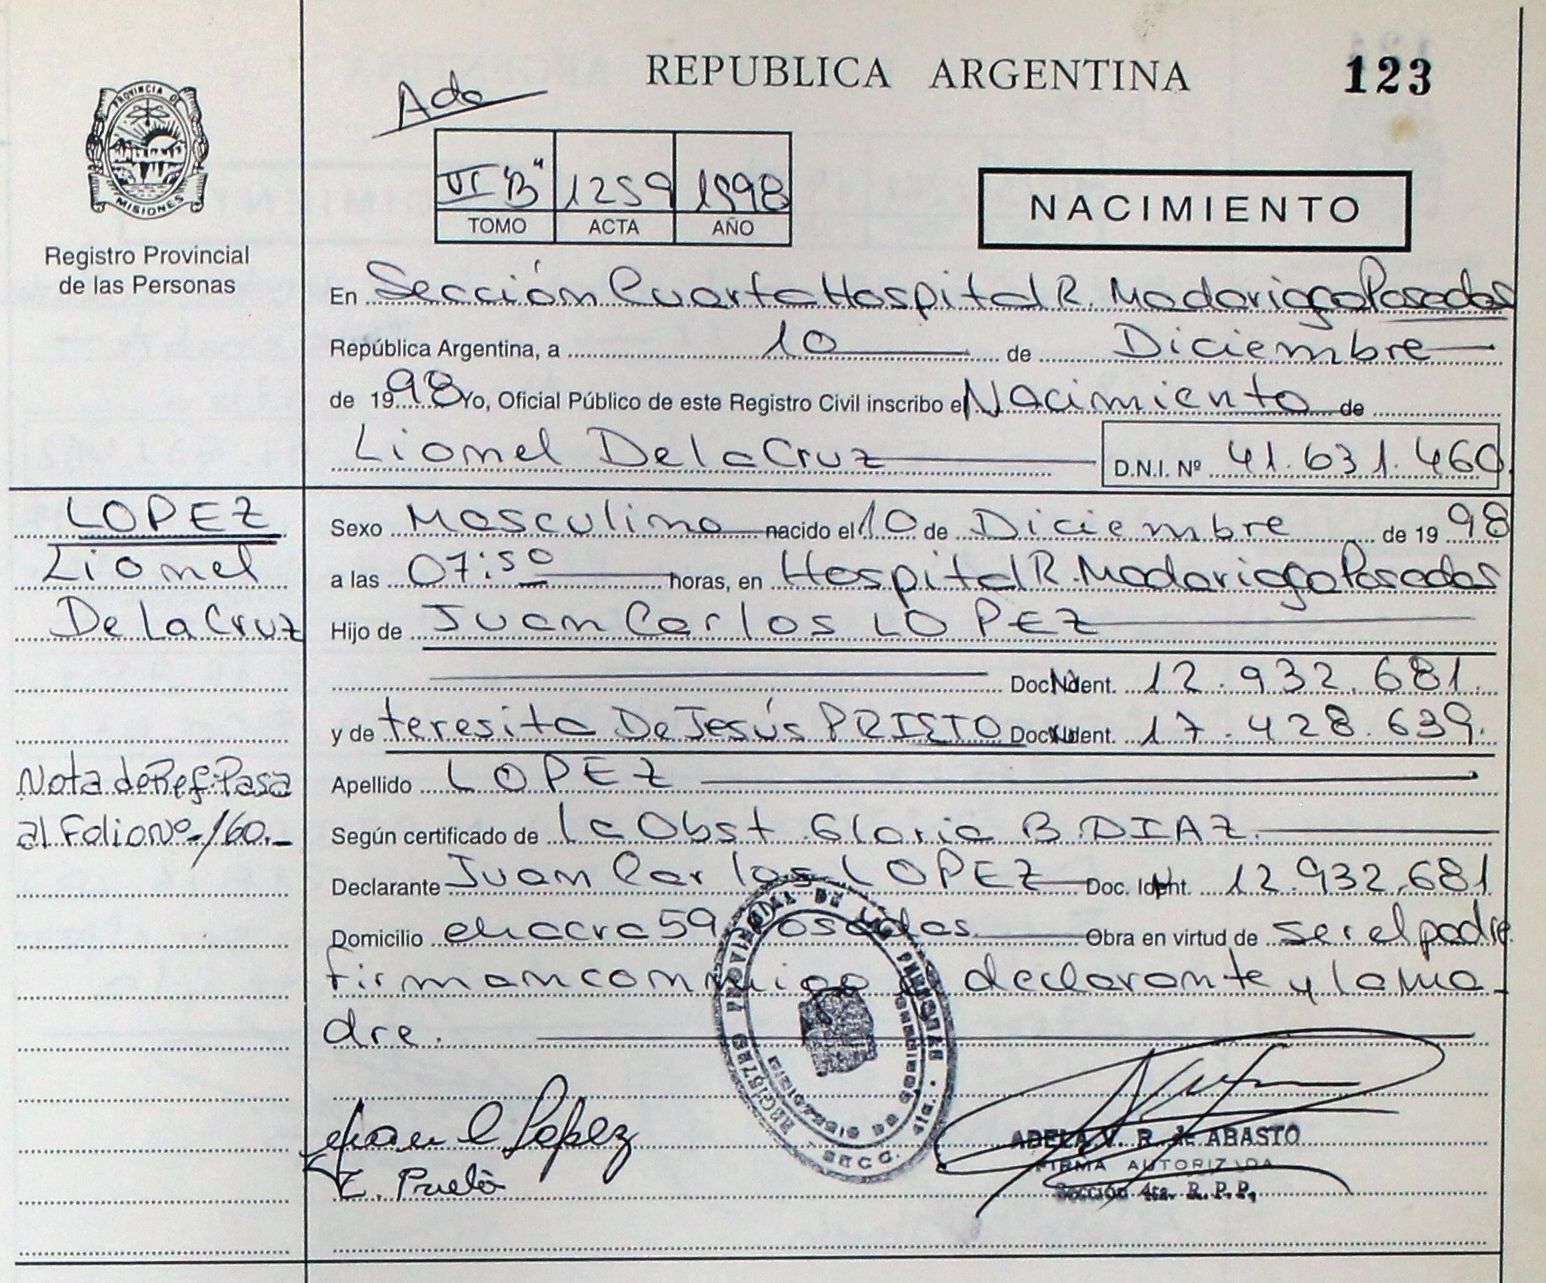 REPUBLICA ARGENTINA
123
Ado
PROVINCIA DE
MISIONES
Registro Provincial
de las Personas
VI "B" 1259 1998
TOMO ACTA AÑO
NACIMIENTO
En Sección Cuarta Hospital R. Madariaga Posadas
República Argentina, a 10 de Diciembre
de 1998 Yo, Oficial Público de este Registro Civil inscribo el Nacimiento de
Lionel De la Cruz D.N.I. Nº 41.631.460
LOPEZ
Lionel
De La Cruz
Sexo Masculino nacido el 10 de Diciembre de 1998
a las 07:50 horas, en Hospital R. Madariaga Posadas
Hijo de Juan Carlos LOPEZ
Doc. Ident. 12.932.681.
y de teresita De Jesús PRIETO Doc. Ident. 17.428.639.
Nota de Ref: Pasa
al Folio Nº 160.-
Apellido LOPEZ
Según certificado de la Obst. Gloria B. DIAZ.
Declarante Juan Carlos LOPEZ Doc. Ident. 12.932.681
Domicilio chacra 59 Posadas. Obra en virtud de ser el padre
firman conmigo declarante y la ma-
dre.
REGISTRO PROVINCIAL DE LAS PERSONAS
SECC. 4ta.
Juan C Lopez
T. Prieto
ADELA V. R. de ABASTO
FIRMA AUTORIZADA
Sección 4ta. R.P.P.